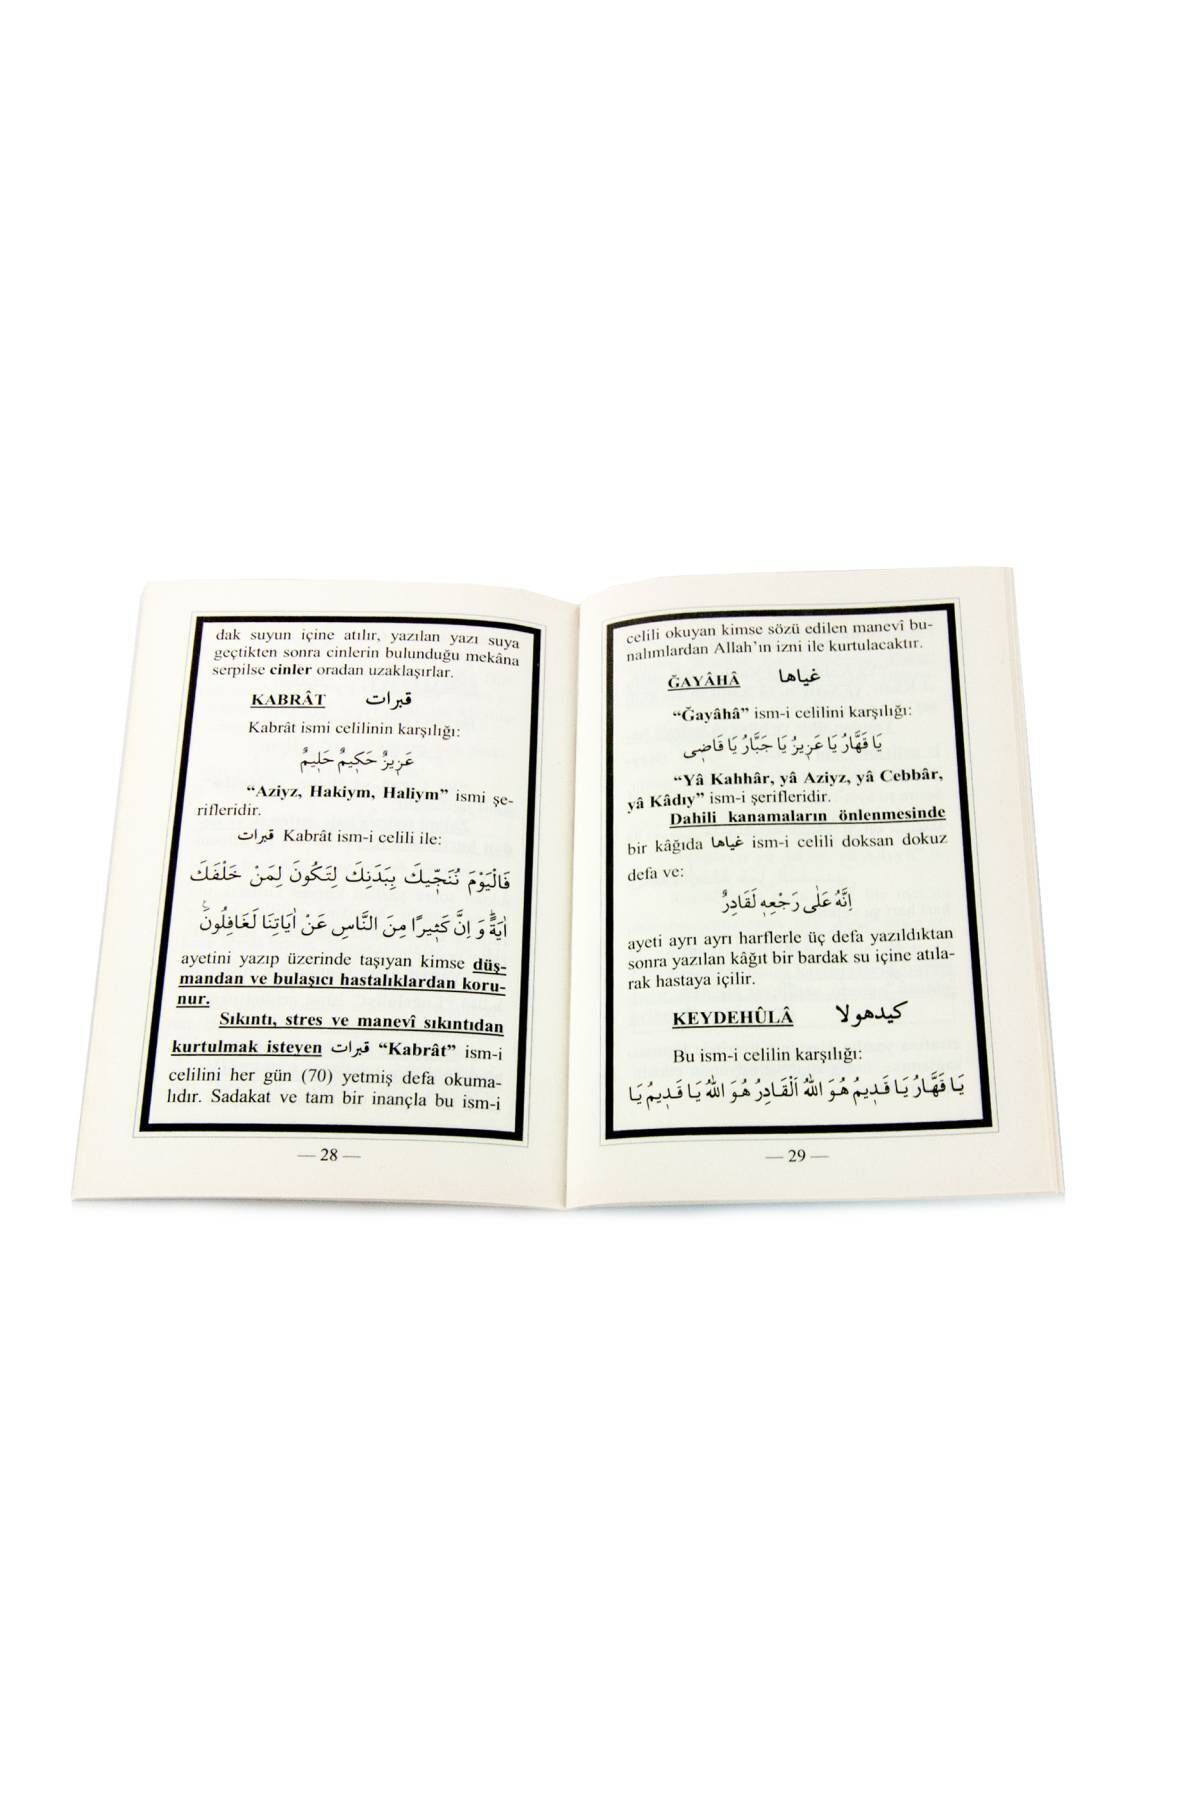 dak suyun içine atılır, yazılan yazı suya
geçtikten sonra cinlerin bulunduğu mekâna
serpilse cinler oradan uzaklaşırlar.
KABRÂT قبرات
Kabrât ismi celilinin karşılığı:
عَزِيزٌ حَكِيمٌ حَلِيمٌ
“Aziyz, Hakiym, Haliym” ismi şe-
rifleridir.
قبرات Kabrât ism-i celili ile:
فَالْيَوْمَ نُنَجِّيكَ بِبَدَنِكَ لِتَكُونَ لِمَنْ خَلْفَكَ
اٰيَةً وَ اِنَّ كَثِيرًا مِنَ النَّاسِ عَنْ اٰيَاتِنَا لَغَافِلُونَ
ayetini yazıp üzerinde taşıyan kimse düş-
mandan ve bulaşıcı hastalıklardan koru-
nur.
Sıkıntı, stres ve manevî sıkıntıdan
kurtulmak isteyen قبرات “Kabrât” ism-i
celilini her gün (70) yetmiş defa okuma-
lıdır. Sadakat ve tam bir inançla bu ism-i
— 28 —
celili okuyan kimse sözü edilen manevî bu-
nalımlardan Allah’ın izni ile kurtulacaktır.
ĞAYÂHÂ غياها
“Ğayâhâ” ism-i celilini karşılığı:
يَا قَهَّارُ يَا عَزِيزُ يَا جَبَّارُ يَا قَاضِى
“Yâ Kahhâr, yâ Aziyz, yâ Cebbâr,
yâ Kâdıy” ism-i şerifleridir.
Dahili kanamaların önlenmesinde
bir kâğıda غياها ism-i celili doksan dokuz
defa ve:
اِنَّهُ عَلٰى رَجْعِهِ لَقَادِرٌ
ayeti ayrı ayrı harflerle üç defa yazıldıktan
sonra yazılan kâğıt bir bardak su içine atıla-
rak hastaya içilir.
KEYDEHÛLÂ كيدهولا
Bu ism-i celilin karşılığı:
يَا قَهَّارُ يَا قَدِيمُ هُوَ اللهُ اَلْقَادِرُ هُوَ اللهُ يَا قَدِيمُ يَا
— 29 —